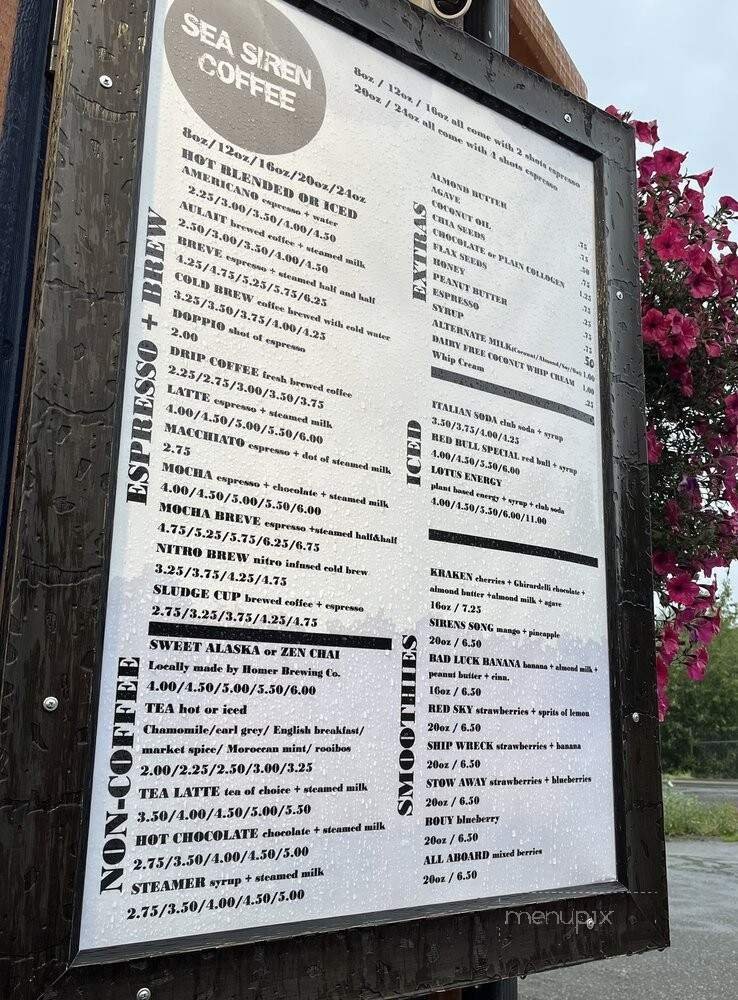 SEA SIREN
COFFEE
8oz / 12oz / 16oz all come with 2 shots espresso
20oz / 24oz all come with 4 shots espresso
ESPRESSO + BREW
8oz/12oz/16oz/20oz/24oz
HOT BLENDED OR ICED
AMERICANO espresso + water
2.25/3.00/3.50/4.00/4.50
AULAIT brewed coffee + steamed milk
2.50/3.00/3.50/4.00/4.50
BREVE espresso + steamed half and half
4.25/4.75/5.25/5.75/6.25
COLD BREW coffee brewed with cold water
3.25/3.50/3.75/4.00/4.25
DOPPIO shot of espresso
2.00
DRIP COFFEE fresh brewed coffee
2.25/2.75/3.00/3.50/3.75
LATTE espresso + steamed milk
4.00/4.50/5.00/5.50/6.00
MACCHIATO espresso + dot of steamed milk
2.75
MOCHA espresso + chocolate + steamed milk
4.00/4.50/5.00/5.50/6.00
MOCHA BREVE espresso +steamed half&half
4.75/5.25/5.75/6.25/6.75
NITRO BREW nitro infused cold brew
3.25/3.75/4.25/4.75
SLUDGE CUP brewed coffee + espresso
2.75/3.25/3.75/4.25/4.75
NON-COFFEE
SWEET ALASKA or ZEN CHAI
Locally made by Homer Brewing Co.
4.00/4.50/5.00/5.50/6.00
TEA hot or iced
Chamomile/earl grey/ English breakfast/
market spice/ Moroccan mint/ rooibos
2.00/2.25/2.50/3.00/3.25
TEA LATTE tea of choice + steamed milk
3.50/4.00/4.50/5.00/5.50
HOT CHOCOLATE chocolate + steamed milk
2.75/3.50/4.00/4.50/5.00
STEAMER syrup + steamed milk
2.75/3.50/4.00/4.50/5.00
EXTRAS
ALMOND BUTTER .75
AGAVE .75
COCONUT OIL .50
CHIA SEEDS .75
CHOCOLATE or PLAIN COLLOGEN 1.25
FLAX SEEDS .75
HONEY .25
PEANUT BUTTER .75
ESPRESSO
SYRUP .50
ALTERNATE MILK(Coconut/Almond/Soy/Oat) 1.00
DAIRY FREE COCONUT WHIP CREAM 1.00
Whip Cream .25
ICED
ITALIAN SODA club soda + syrup
3.50/3.75/4.00/4.25
RED BULL SPECIAL red bull + syrup
4.00/4.50/5.50/6.00
LOTUS ENERGY
plant based energy + syrup + club soda
4.00/4.50/5.50/6.00/11.00
SMOOTHIES
KRAKEN cherries + Ghirardelli chocolate +
almond butter +almond milk + agave
16oz / 7.25
SIRENS SONG mango + pineapple
20oz / 6.50
BAD LUCK BANANA banana + almond milk +
peanut butter + cinn.
16oz / 6.50
RED SKY strawberries + sprits of lemon
20oz / 6.50
SHIP WRECK strawberries + banana
20oz / 6.50
STOW AWAY strawberries + blueberries
20oz / 6.50
BOUY blueberry
20oz / 6.50
ALL ABOARD mixed berries
20oz / 6.50
menupix